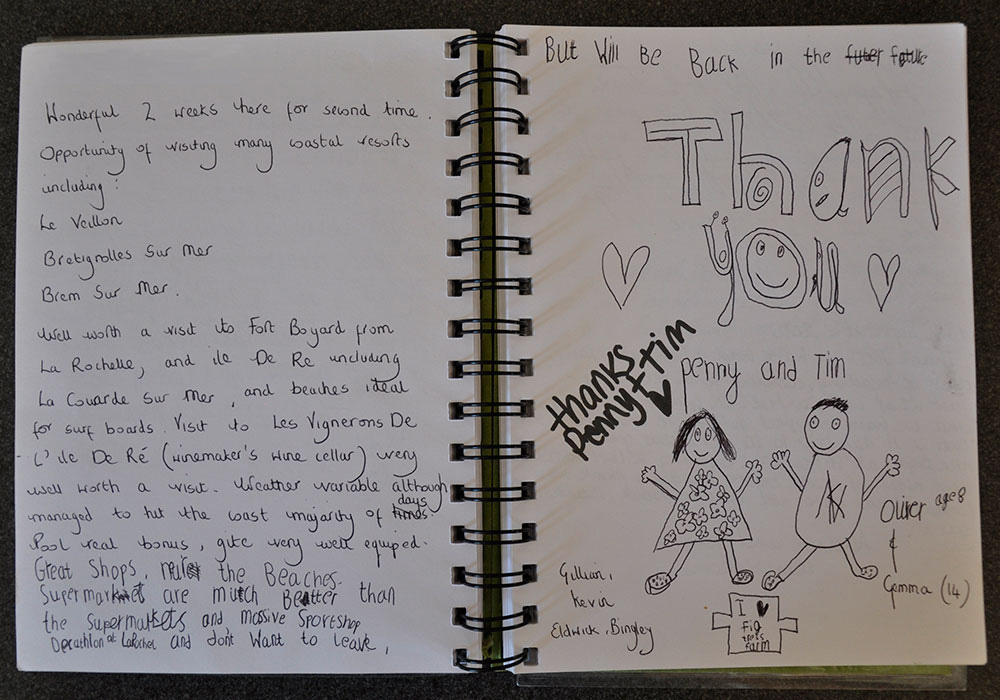 Wonderful 2 weeks here for second time.
Opportunity of visiting many coastal resorts
including:
Le Veillon
Bretignolles Sur Mer
Brem Sur Mer.
Well worth a visit to Fort Boyard from
La Rochelle, and ile De Re including
La Couarde Sur Mer, and beaches ideal
for surf boards. Visit to Les Vignerons De
L'ile De Ré (winemaker's wine cellar) very
well worth a visit. Weather variable although
managed to hit the coast majority of days.
Pool real bonus, gite very well equiped.
Great Shops, the Beaches.
Supermarkets are much Beatter than
the Supermarkets and massive Sportshop
Decathlon at and dont want to leave,
But Will Be Back in the future
Thank
you
thanks
Penny + Tim
Penny and Tim
Oliver age 8
&
Gemma (14)
Gillian,
Kevin
Eldwick, Bingley
I
Fig
trees
farm